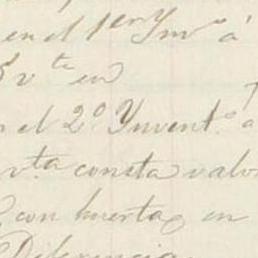 en el 1er Ynvo a
5 vta en
n el 2o Ynvento a
vta consta valo
con huerta en
Diferencia